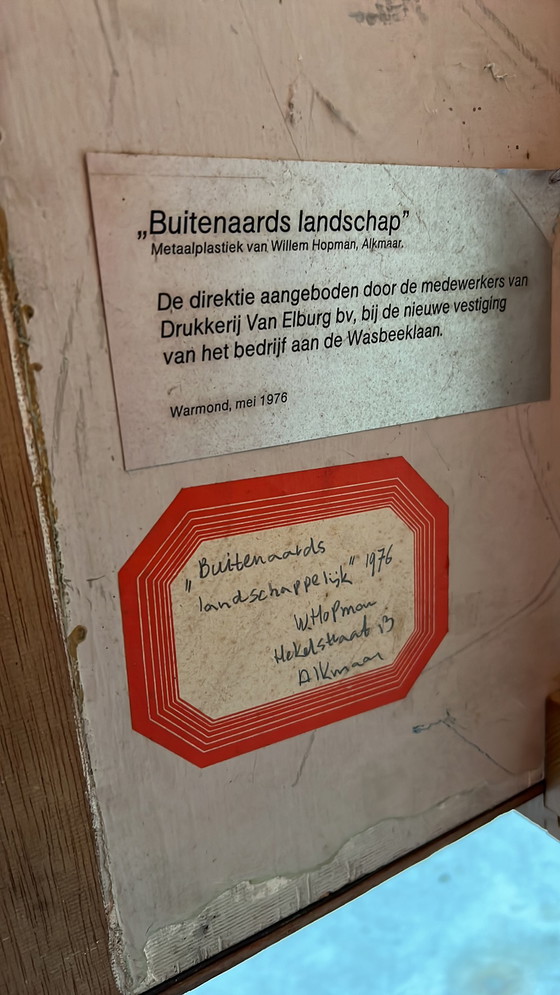 „Buitenaards landschap”
Metaalplastiek van Willem Hopman, Alkmaar.
De direktie aangeboden door de medewerkers van
Drukkerij Van Elburg bv, bij de nieuwe vestiging
van het bedrijf aan de Wasbeeklaan.
Warmond, mei 1976
„Buitenaards
landschappelijk” 1976
W. Hopman
Hekelstraat 13
Alkmaar